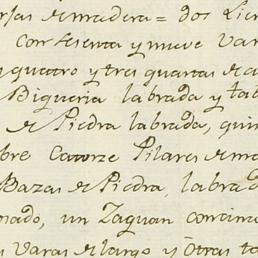 de madera = dos Lien
con sesenta y nueve Var
quatro y tres quartas de a
Bigueria labrada y tab
de Piedra labrada, quin
bre Catorze Pilares de m
Bazas de Piedra, labrad
un Zaguan con
Varas de largo y otras ta